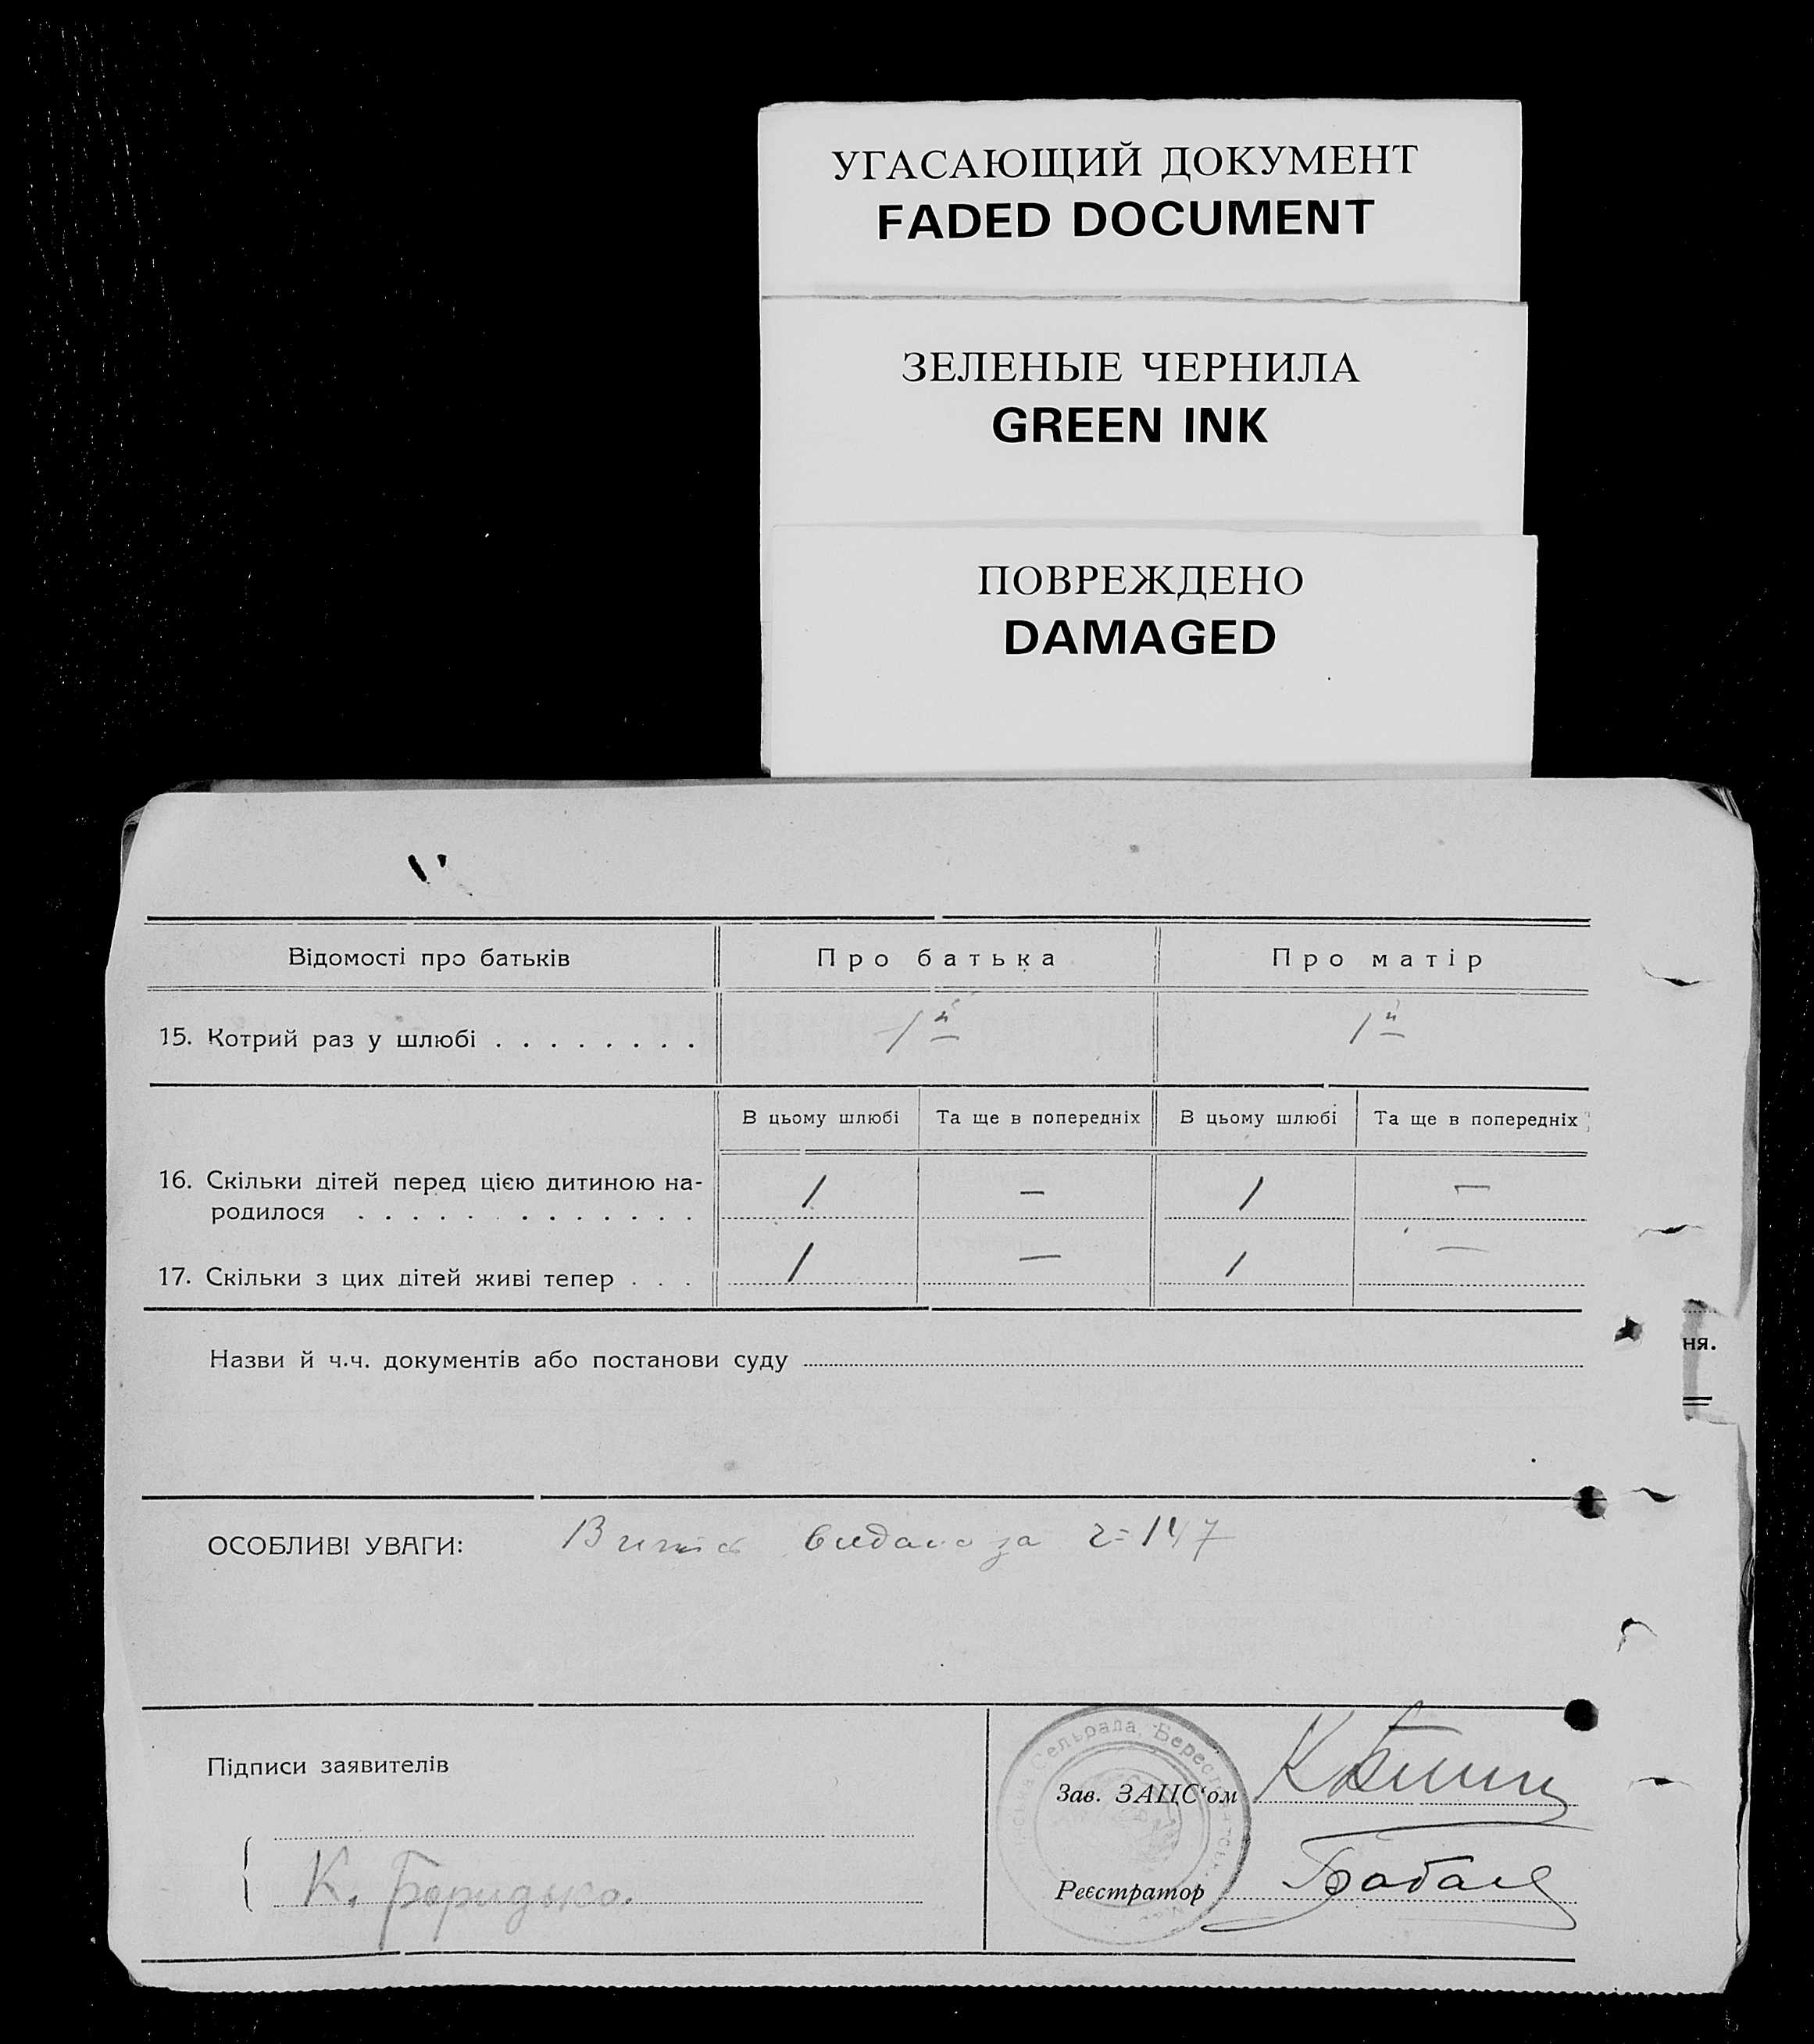 УГАСАЮЩИЙ ДОКУМЕНТ
FADED DOCUMENT
ЗЕЛЕНЫЕ ЧЕРНИЛА
GREEN INK
ПОВРЕЖДЕНО
DAMAGED
Відомості про батьків Про батька Про матір
15. Котрий раз у шлюбі . . . . . . . . 1й 1й
В цьому шлюбі Та ще в попередніх В цьому шлюбі Та ще в попередніх
16. Скільки дітей перед цією дитиною на-
родилося . . . . . . . . . . . . . 1 — 1 —
17. Скільки з цих дітей живі тепер . . . 1 — 1 —
ня.
Назви й ч.ч. документів або постанови суду
ОСОБЛИВІ УВАГИ: видано за ч=147
Підписи заявителів
Сельрада, Берест
Зав. ЗАЦС'ом
К.
Реєстратор